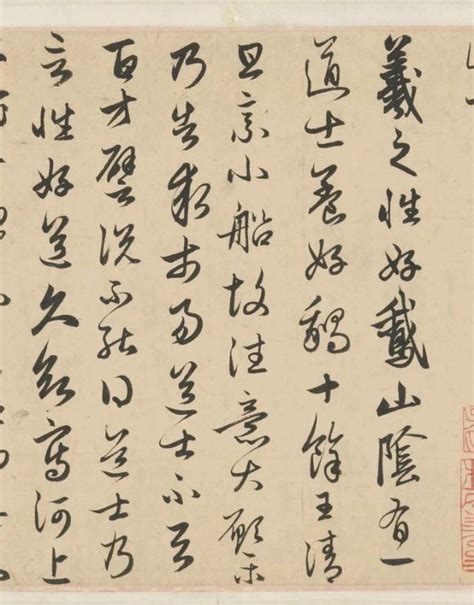 羲之性好鵞山陰有一
道士養好鵝十餘王清
旦乘小船故往意大願樂
乃告求市易道士不與
百方譬說不能得道士乃
言性好道久欲寫河上